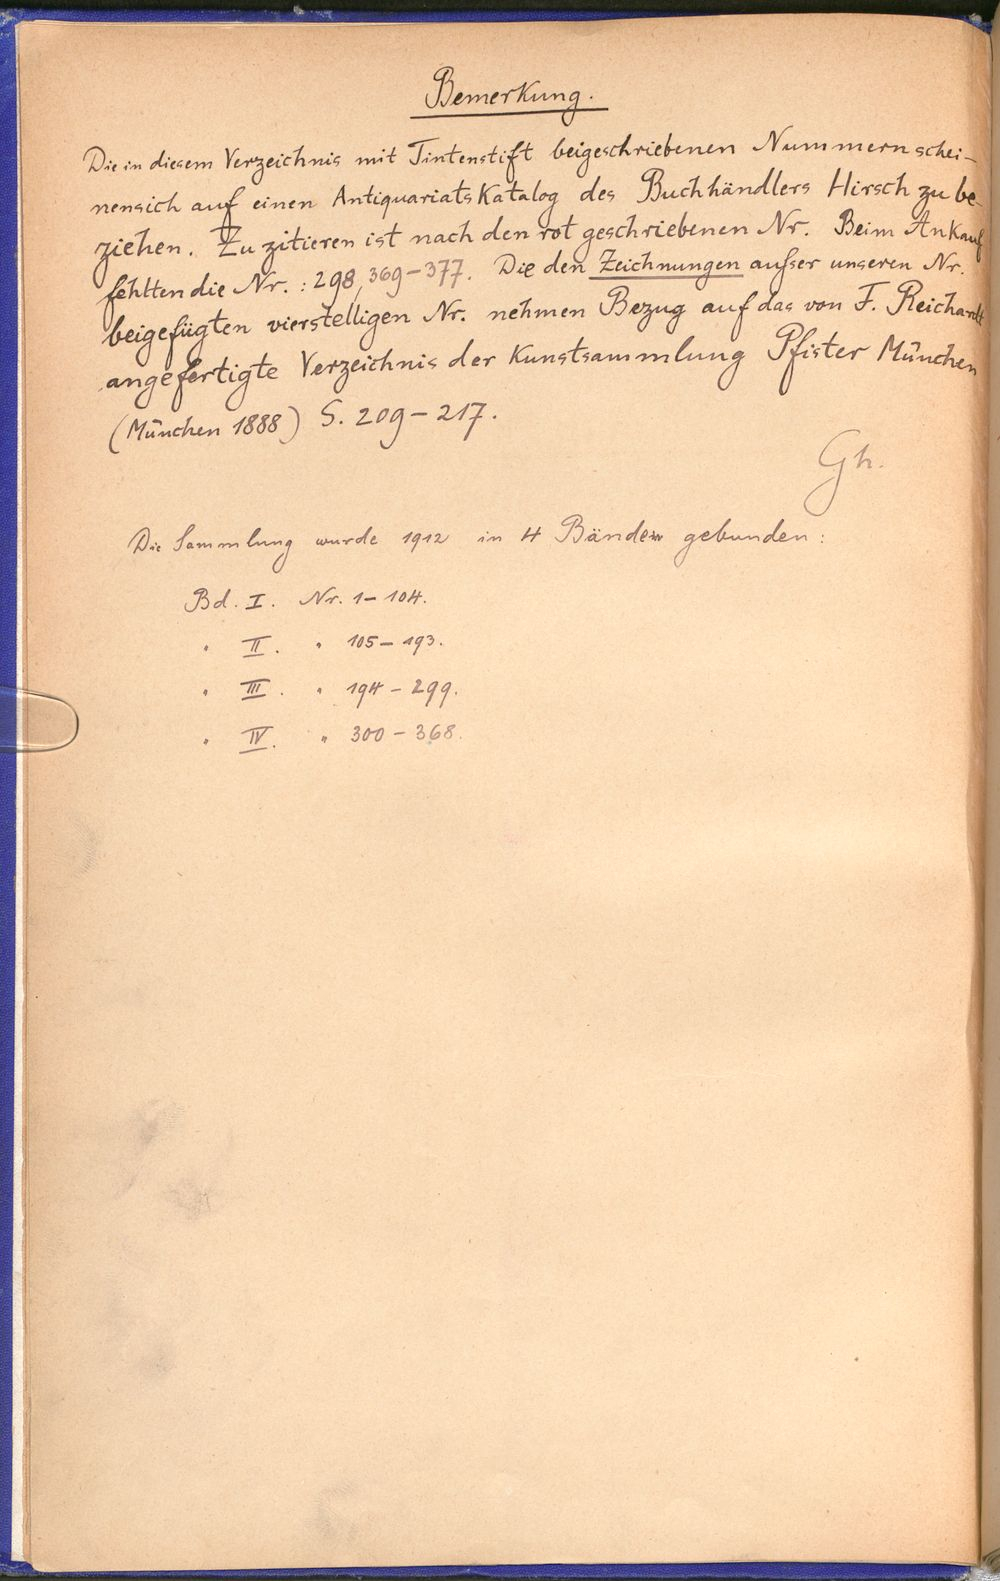 Bemerkung.
Die in diesem Verzeichnis mit Tintenstift beigeschriebenen Nummern schei-
nen sich auf einen Antiquariatskatalog des Buchhändlers Hirsch zu be-
ziehen. Zu zitieren ist nach den rot geschriebenen Nr. Beim Ankauf
fehlten die Nr. : 298, 369-377. Die den Zeichnungen aufser unseren Nr.
beigefügten vierstelligen Nr. nehmen Bezug auf das von F. Reichardt
angefertigte Verzeichnis der Kunstsammlung Pfister München
(München 1888) S. 209-217.
Gh.
Die Sammlung wurde 1912 in 4 Bänden gebunden:
Bd. I. Nr. 1-104.
" II. " 105-193.
" III. " 194-299.
" IV. " 300-368.